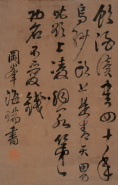 飲酒讀書四十年
烏紗頭上是青天男
兒欲上凌烟閣第一
功名不愛錢
剛峯海瑞書